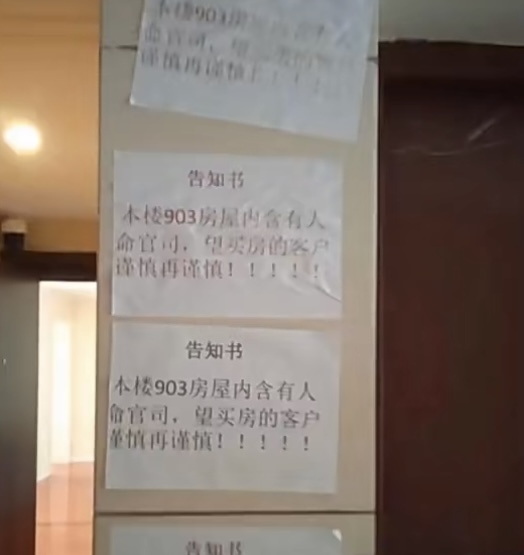 本楼903房屋内含有人
命官司，望买房的客户
谨慎再谨慎！！！！！
告知书
本楼903房屋内含有人
命官司，望买房的客户
谨慎再谨慎！！！！！
告知书
本楼903房屋内含有人
命官司，望买房的客户
谨慎再谨慎！！！！！
告知书